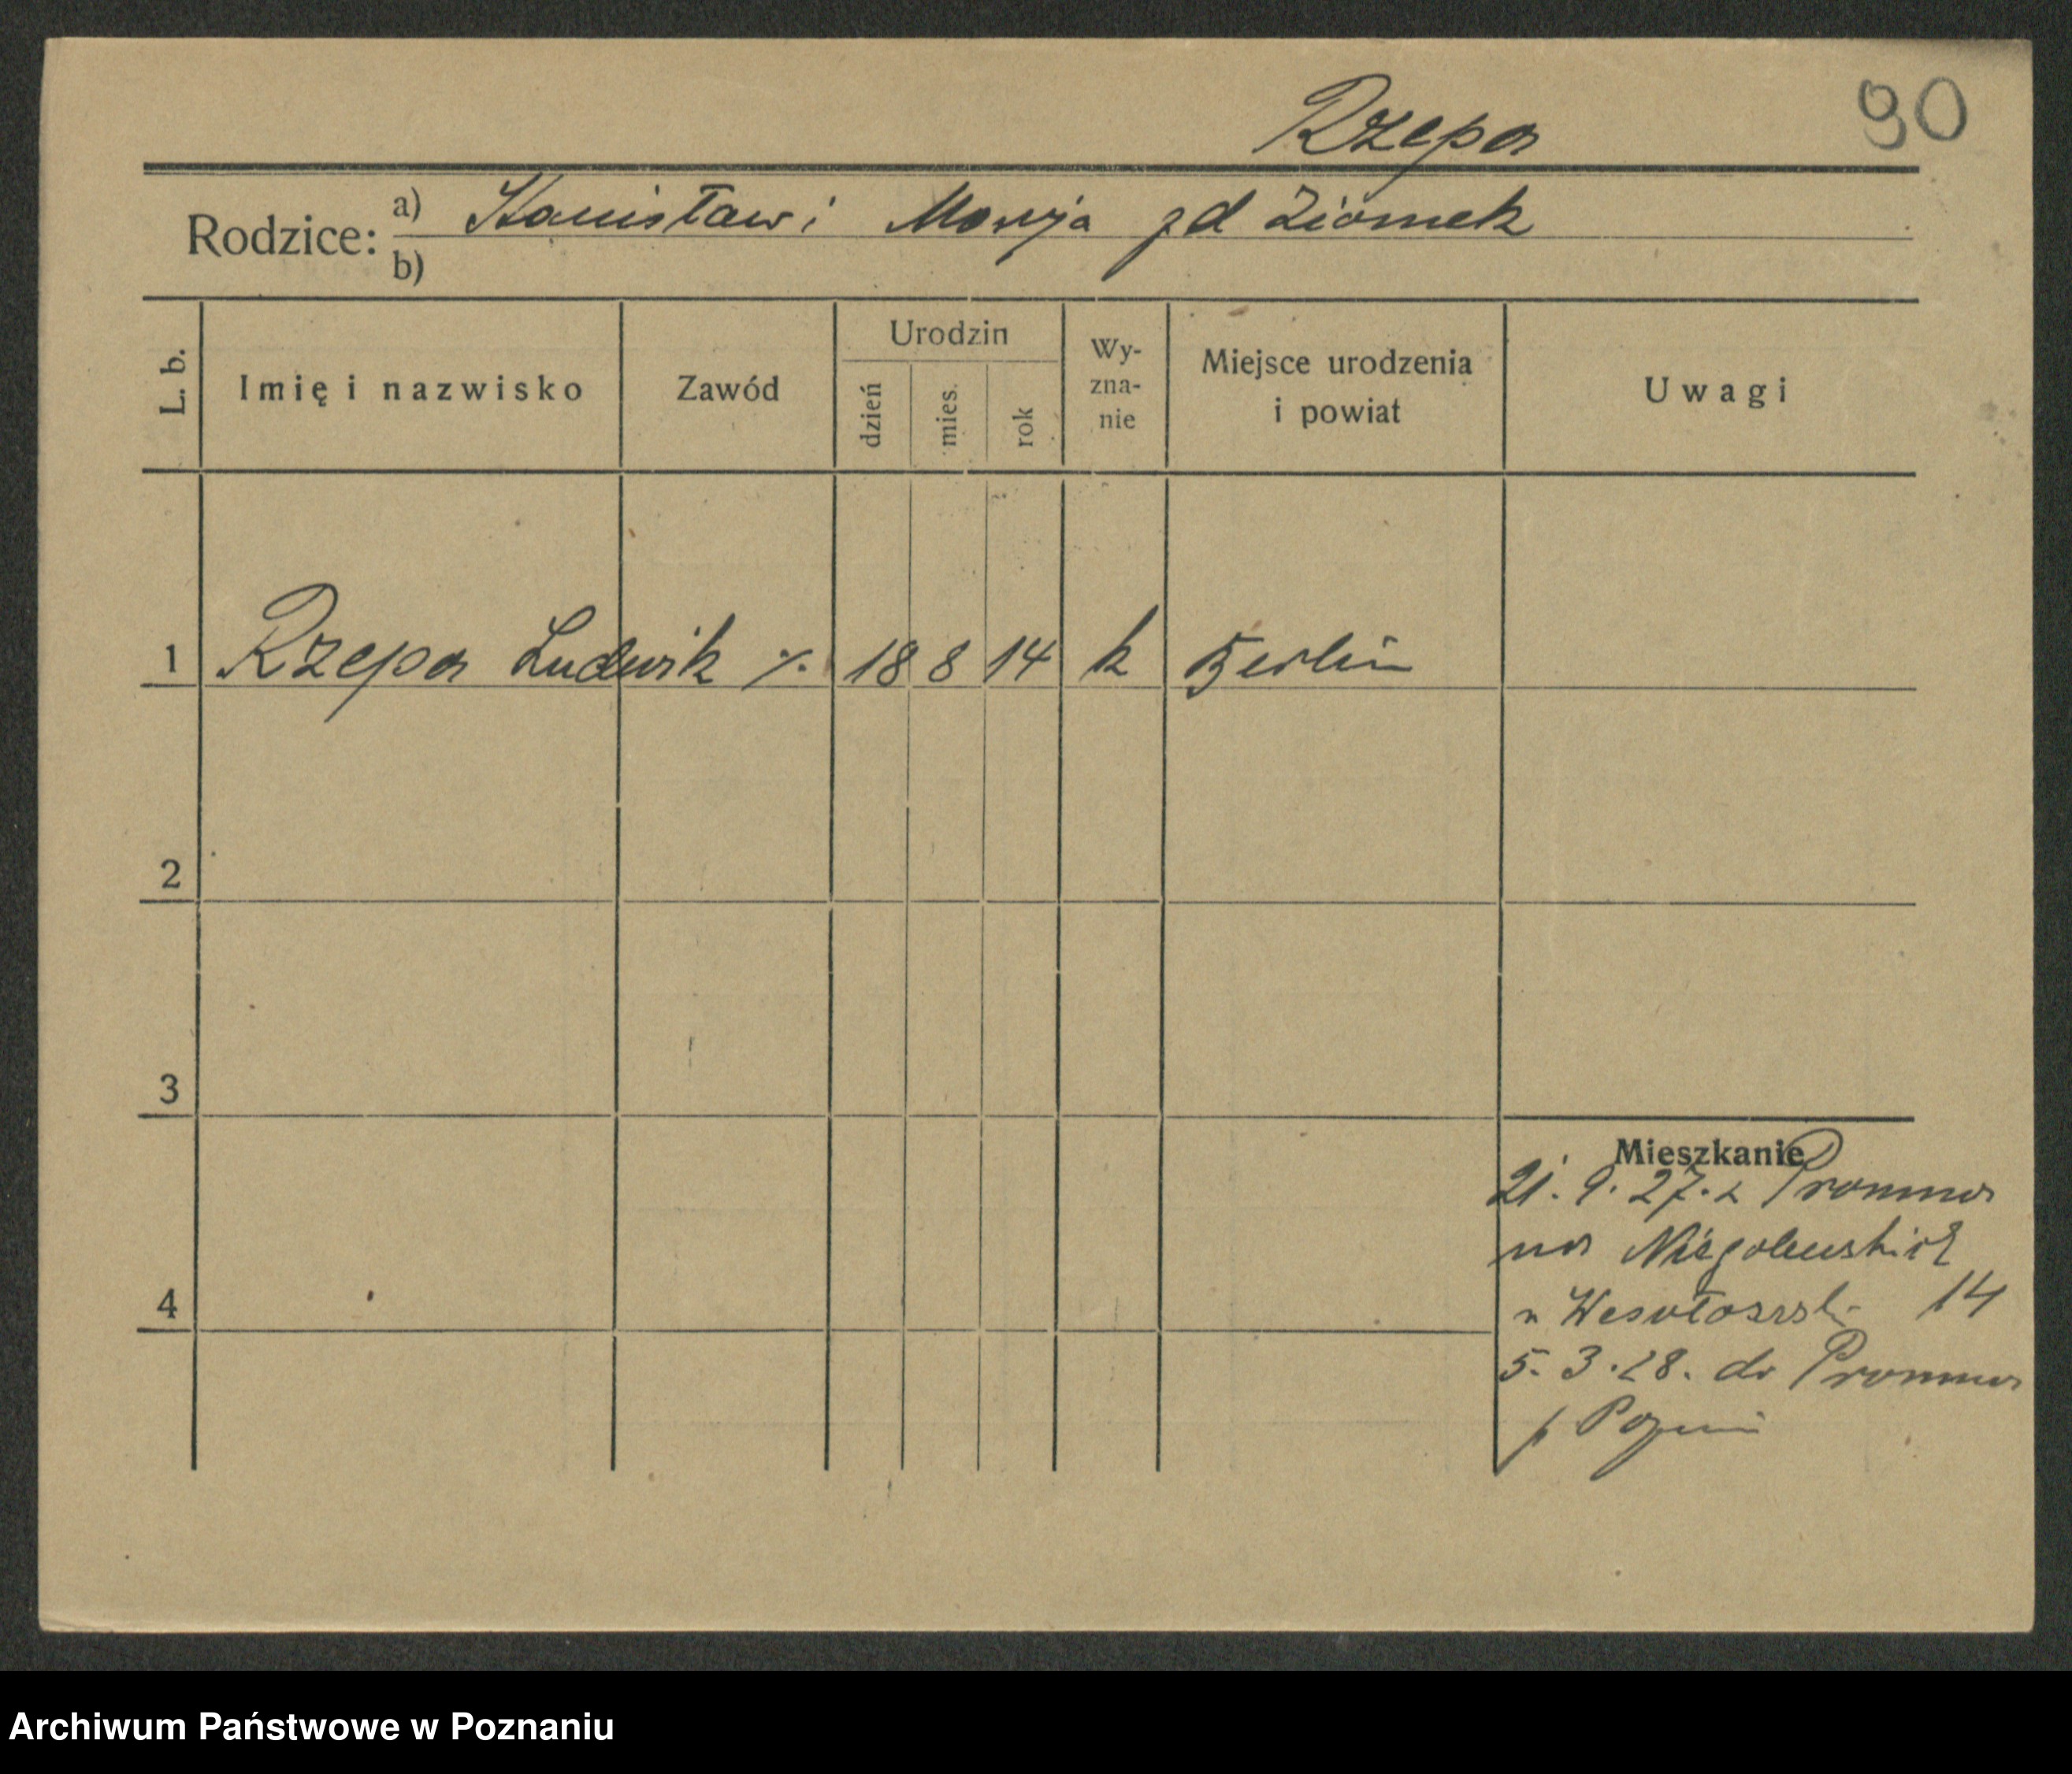 Rzepa 90
Rodzice: a) Stanisław i Marja zd Ziomek
b)
L. b. Imię i nazwisko Zawód Urodzin dzień mies. rok Wy-zna-nie Miejsce urodzenia i powiat Uwagi
1 Rzepa Ludwik ./. 18 8 14 k Berlin
2
3
Mieszkanie
21. 9. 27. z Promna
na Niegolewskich
4
u 14
5. 3. 28. do Promna
p
Archiwum Państwowe w Poznaniu